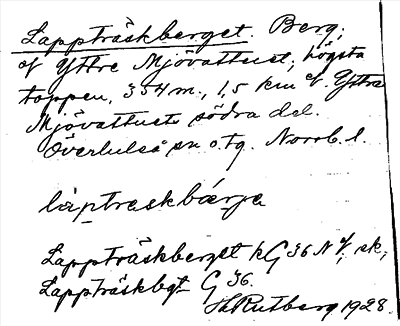 Lappträskberget. Berg,
of Yttre Mjövattnet, högsta
toppen, 354 m., 1,5 km of Yttre
Mjövattnets södra del.
Överluleå sn o. tg. Norrb. l.
läptraskbárja
Lappträskberget kG 36 NV, ek,
Lappträskbgt G 36.
Rutberg 1928.